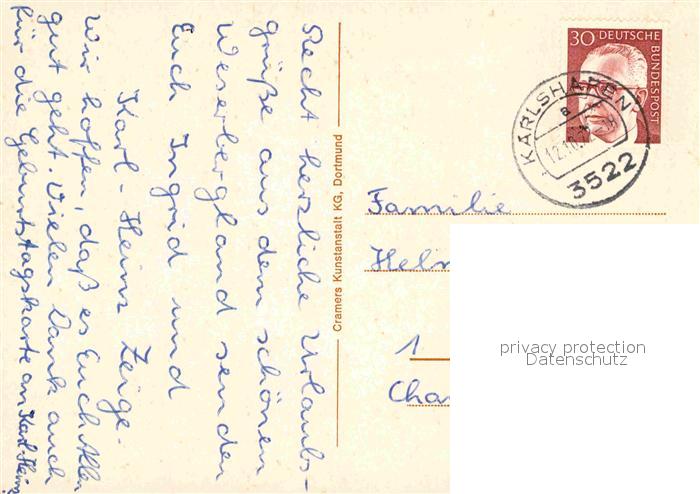 Recht herzliche Urlaubs-
grüße aus dem schönen
Weserbergland senden
Euch Ingrid und
Karl-Heinz Zeige.
Wir hoffen, daß es Euch Allen
gut geht. Vielen Dank auch
für die Geburtstagskarte an Karl-Heinz.
Cramers Kunstanstalt KG, Dortmund
30 DEUTSCHE
BUNDESPOST
KARLSHAFEN
a
12.10.
3522
Familie
Helm
1
Cha
privacy protection
Datenschutz